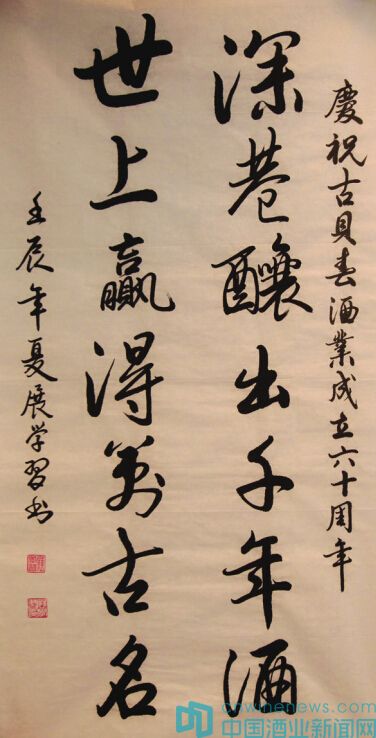 慶祝古貝春酒業成立六十周年
深巷釀出千年酒
世上贏得萬古名
壬辰年夏展学習书
cnwinenews.com
中国酒业新闻网